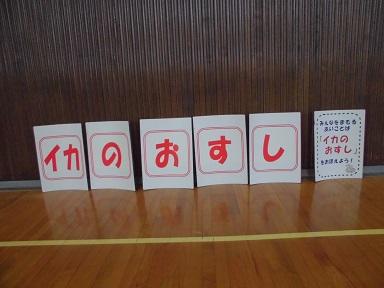 イカのおすし
みんなをまもる
あいことば
「イカの
おすし」
をおぼえよう！